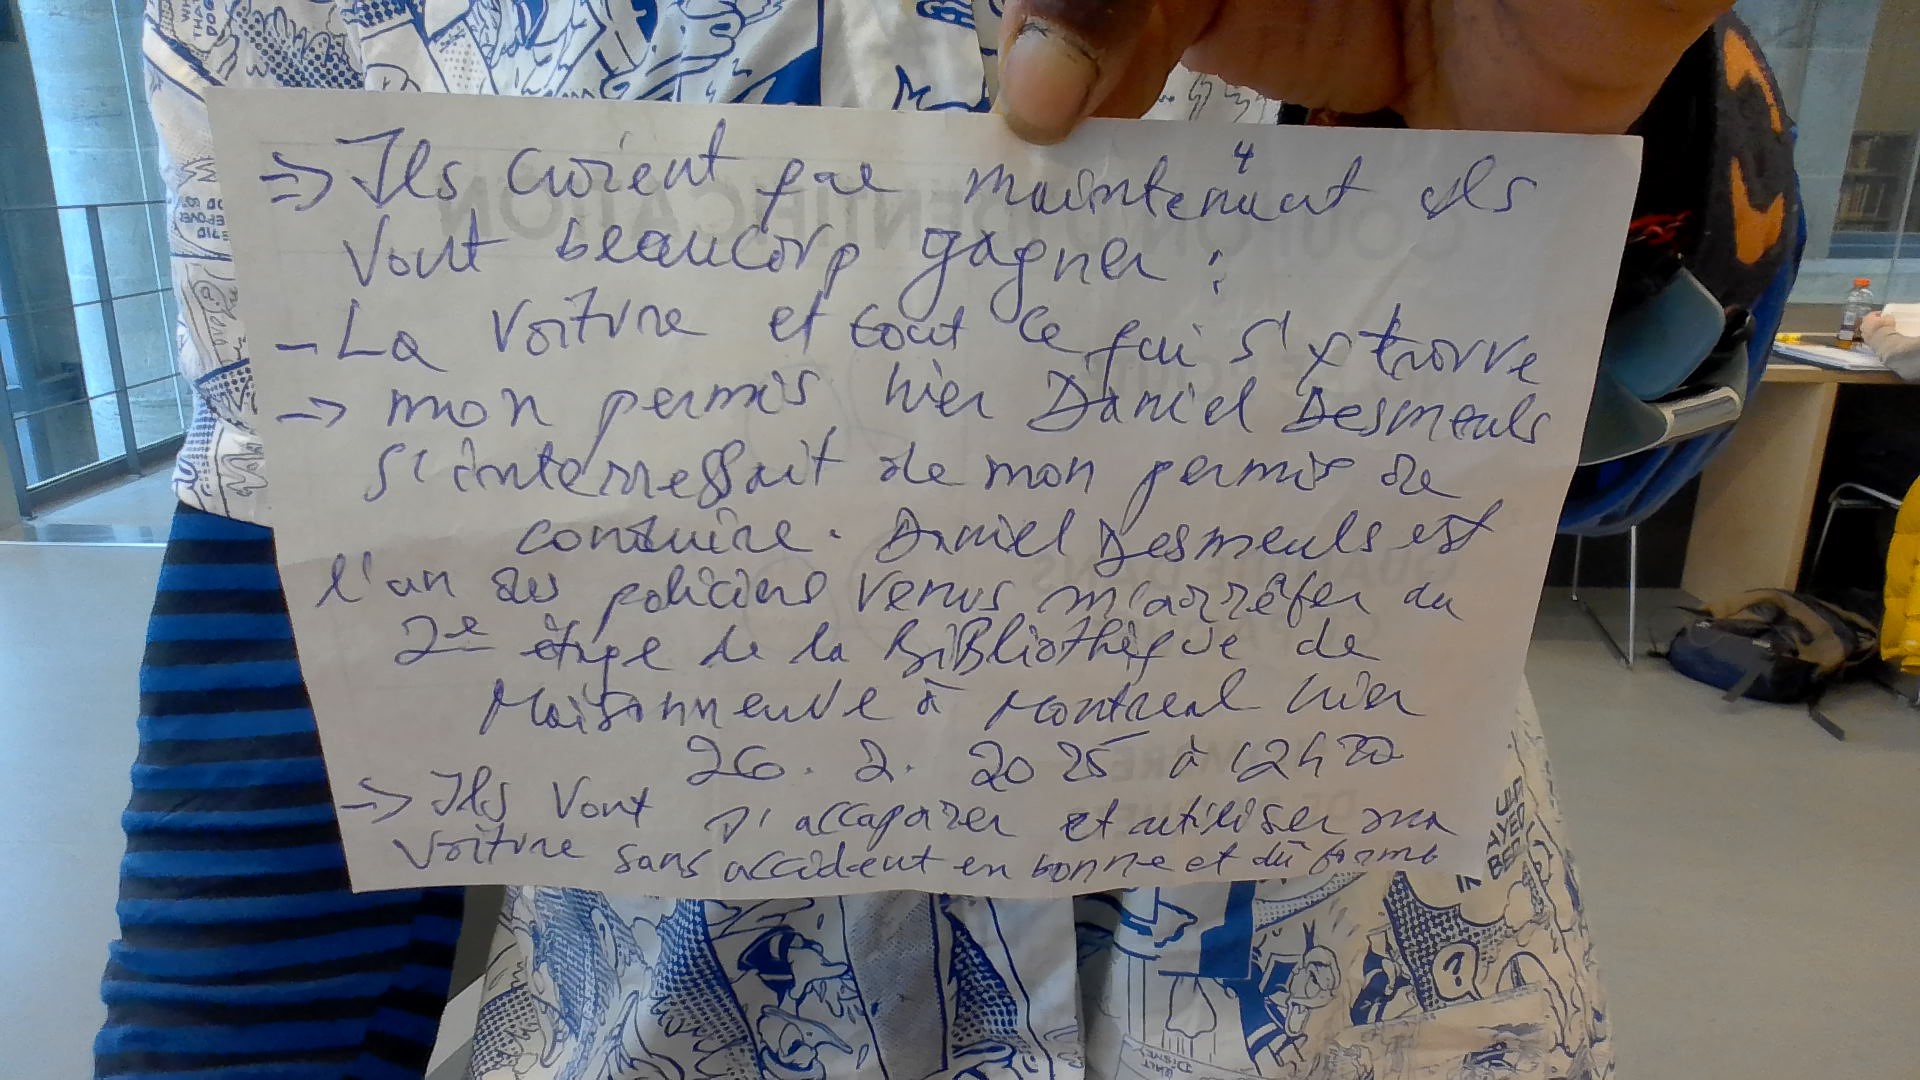 4
=> Ils croient que maintenant ils
vont beaucoup gagner :
- La voiture et tout ce qui s'y trouve
-> mon permis hier Daniel Desmeuls
s'interressait de mon permis de
conduire. Daniel Desmeuls est
l'un des policiers venus m'arrêter au
2e étage de la BiBliothèque de
Maisonneuve à Montreal hier
26. 2. 2025 à 12h
-> Ils vont s'accaparer et utiliser ma
voiture sans accident en bonne et dû forme